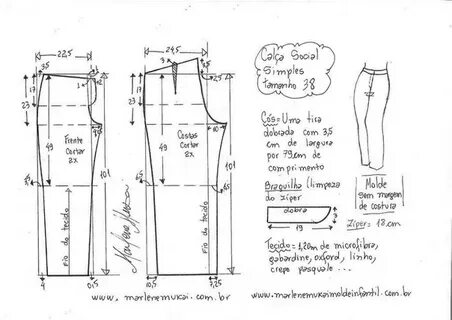 22,5
3,5
1
17
23
49
Frente
Cortar
2x
101
Fio do tecido
4
0,5
24,5
3
3,5
17
23
10
49
Costas
Cortar
2x
101
Fio do tecido
10,5
7,25
Marlene Mukai
www.marlenemukai.com.br
Calça Social
Simples
tamanho 38
Cós= Uma tira
dobrada com 3,5
cm de largura
por 79 cm de
comprimento
Braguilha (limpeza
do zíper)
dobra
19
Tecido= 1,20m de microfibra,
gabardine, oxford, linho,
crepe pasquale...
Molde
sem margem
de costura
Zíper= 18cm
www.marlenemukaimoldeinfantil.com.br